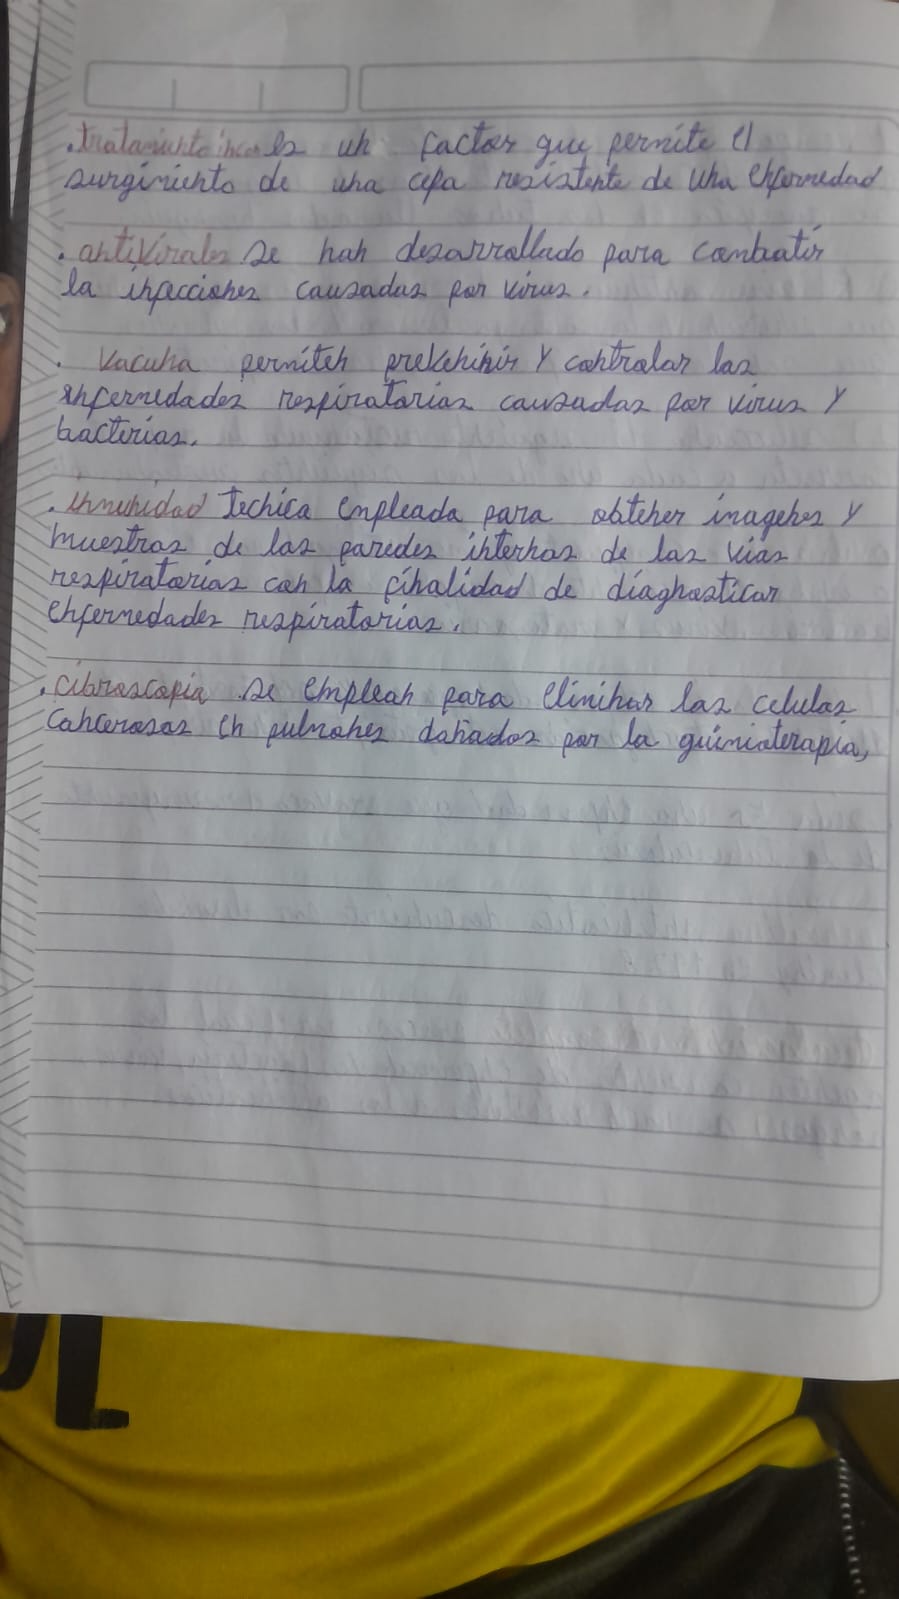 .tratamiento inco es un factor que permite el
surgimiento de una cepa resistente de una enfermedad
. antivirales se han desarrollado para combatir
la infecciones causadas por virus.
. vacuna permiten preveninir y controlar las
enfermedades respiratorias causadas por virus y
bacterias.
. inmunidad tecnica empleada para obtener imagenes y
muestras de las paredes internas de las vias
respiratorias con la finalidad de diagnosticar
enfermedades respiratorias.
. fibroscopia se emplean para eliminar las celulas
cancerosas en pulmones dañados por la quimioterapia,